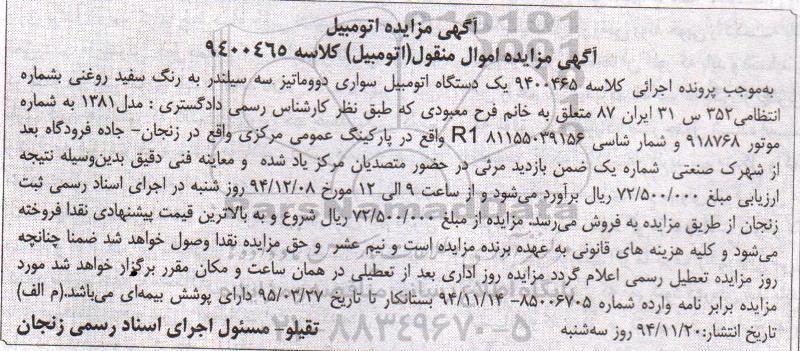 آگهی مزایده اتومبیل
آگهی مزایده اموال منقول(اتومبیل) کلاسه ۹۴۰۰۴۶۵
به‌موجب پرونده اجرائی کلاسه ۹۴۰۰۴۶۵ یک دستگاه اتومبیل سواری دووماتیز سه سیلندر به رنگ سفید روغنی بشماره
انتظامی۳۵۲ س ۳۱ ایران ۸۷ متعلق به خانم فرح معبودی که طبق نظر کارشناس رسمی دادگستری : مدل۱۳۸۱ به شماره
موتور ۹۱۸۷۶۸ و شمار شاسی R1 ۸۱۱۵۵۰۳۹۱۵۶ واقع در پارکینگ عمومی مرکزی واقع در زنجان- جاده فرودگاه بعد
از شهرک صنعتی شماره یک ضمن بازدید مرئی در حضور متصدیان مرکز یاد شده و معاینه فنی دقیق بدین‌وسیله نتیجه
ارزیابی مبلغ ۷۲/۵۰۰/۰۰۰ ریال برآورد می‌شود و از ساعت ۹ الی ۱۲ مورخ ۹۴/۱۲/۰۸ روز شنبه در اجرای اسناد رسمی ثبت
زنجان از طریق مزایده به فروش می‌رسد. مزایده از مبلغ ۷۲/۵۰۰/۰۰۰ ریال شروع و به بالاترین قیمت پیشنهادی نقدا فروخته
می‌شود و کلیه هزینه های قانونی به عهده برنده مزایده است و نیم عشر و حق مزایده نقدا وصول خواهد شد ضمنا چنانچه
روز مزایده تعطیل رسمی اعلام گردد مزایده روز اداری بعد از تعطیلی در همان ساعت و مکان مقرر برگزار خواهد شد مورد
مزایده برابر نامه وارده شماره ۸۵۰۰۶۷۰۵- ۹۴/۱۱/۱۴ بستانکار تا تاریخ ۹۵/۰۳/۲۷ دارای پوشش بیمه‌ای می‌باشد.(م الف)
تاریخ انتشار:۹۴/۱۱/۲۰ روز سه‌شنبه
تقیلو- مسئول اجرای اسناد رسمی زنجان
ParsNamadData
۰۲۱-۸۸۳۴۹۶۷۰-۵